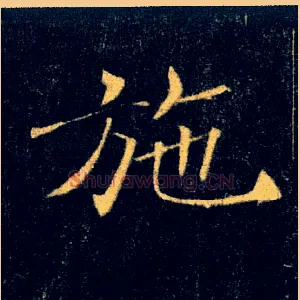 施
shufawang.CN